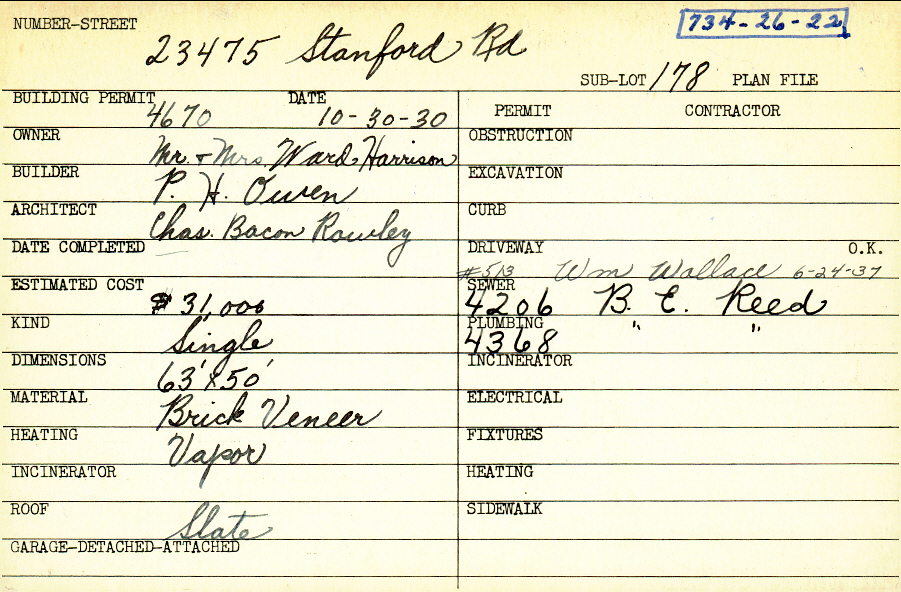 NUMBER-STREET 734-26-22
23475 Stanford Rd
SUB-LOT 178 PLAN FILE
BUILDING PERMIT DATE
4670 10-30-30
OWNER
Mr. + Mrs. Ward Harrison
BUILDER
P. H. Owen
ARCHITECT
Chas. Bacon Rowley
DATE COMPLETED
ESTIMATED COST
$31,000
KIND
Single
DIMENSIONS
63' x 50'
MATERIAL
Brick Veneer
HEATING
Vapor
INCINERATOR
ROOF
Slate
GARAGE-DETACHED-ATTACHED
PERMIT CONTRACTOR
OBSTRUCTION
EXCAVATION
CURB
DRIVEWAY O.K.
#513 Wm Wallace 6-24-37
SEWER
4206 B. E. Reed
PLUMBING
4368 " "
INCINERATOR
ELECTRICAL
FIXTURES
HEATING
SIDEWALK